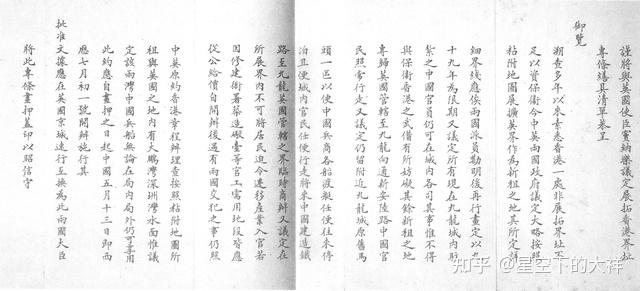 謹將與英國使臣竇納樂議定展拓香港界址
專條繕具清單恭呈
御覽
溯查多年以來素悉香港一處非展拓界址不
足以資保衛今中英兩國政府議定大略按照
粘附地圖展擴英界作為新租之地其所定詳
細界綫應俟兩國派員勘明後再行畫定以九
十九年為限期又議定所有現在九龍城內駐
紮之中國官員仍可在城內各司其事惟不得
與保衛香港之武備有所妨礙其餘新租之地
專歸英國管轄至九龍向通新安陸路中國官
民照常行走又議定仍留附近九龍城原舊馬
頭一區以便中國兵商各船渡艇任便往來停
泊且便城內官民任便行走將來中國建造鐵
路至九龍英國管轄之界臨時商辦又議定在
所展界內不可將居民迫令遷移產業入官若
因修建衙署築造礮臺等官工需用地段皆應
從公給價自開辦後遇有兩國交犯之事仍照
中英原約香港章程辦理查按照粘附地圖所
租與英國之地內有大鵬灣深洲灣水面惟議
定該兩灣中國兵船無論在局內局外仍可享用
此約應自畫押之日起中國五月十三日即西
應七月初一號開辦施行其
批准文據應在英國京城速行互換為此兩國大臣
將此專條畫押蓋印以昭信守
知乎 @星空下的大祥